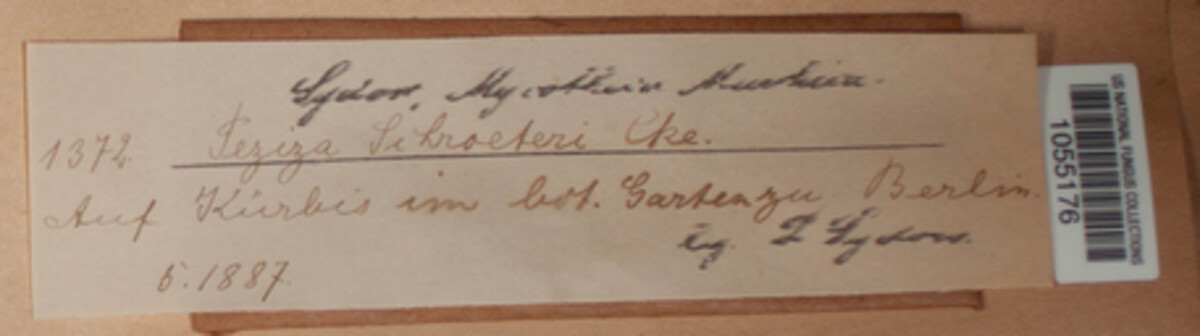 Sydow, Mycotheca Marchica.
1372. Peziza Schroeteri Cke.
Auf Kürbis im bot. Garten zu Berlin.
leg. P. Sydow.
5.1887.
US NATIONAL FUNGUS COLLECTIONS
1055176